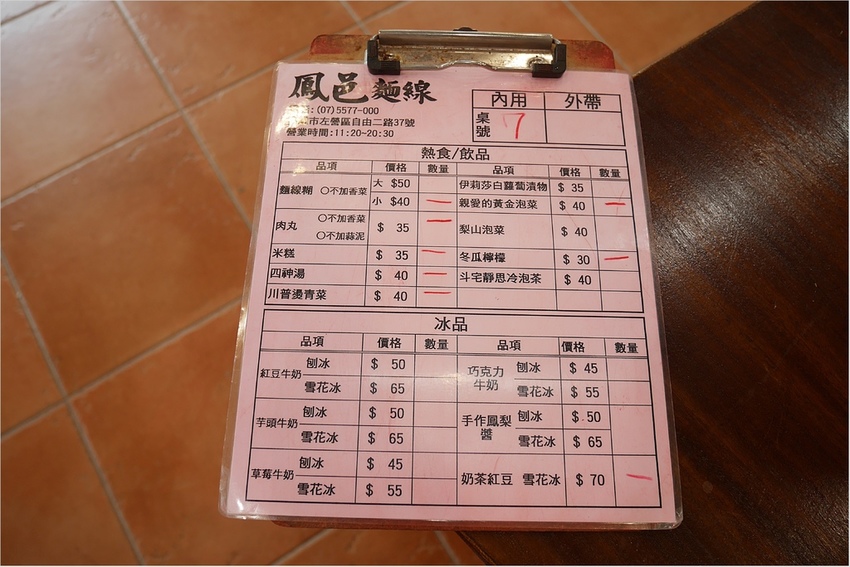 鳳邑麵線
:(07)5577-000
市左營區自由二路37號
營業時間:11:20~20:30
內用 外帶
桌號 7
熱食/飲品
品項 價格 數量 品項 價格 數量
麵線糊 〇不加香菜 大 $50 伊莉莎白蘿蔔漬物 $ 35
小 $40 一 親愛的黃金泡菜 $ 40 一
肉丸 〇不加香菜 〇不加蒜泥 $ 35 一 梨山泡菜 $ 40
米糕 $ 35 一 冬瓜檸檬 $ 30 一
四神湯 $ 40 一 斗宅靜思冷泡茶 $ 40
川普燙青菜 $ 40 一
冰品
品項 價格 數量 品項 價格 數量
紅豆牛奶 刨冰 $ 50 巧克力牛奶 刨冰 $ 45
雪花冰 $ 65 雪花冰 $ 55
芋頭牛奶 刨冰 $ 50 手作鳳梨醬 刨冰 $ 50
雪花冰 $ 65 雪花冰 $ 65
草莓牛奶 刨冰 $ 45 奶茶紅豆 雪花冰 $ 70 一
雪花冰 $ 55